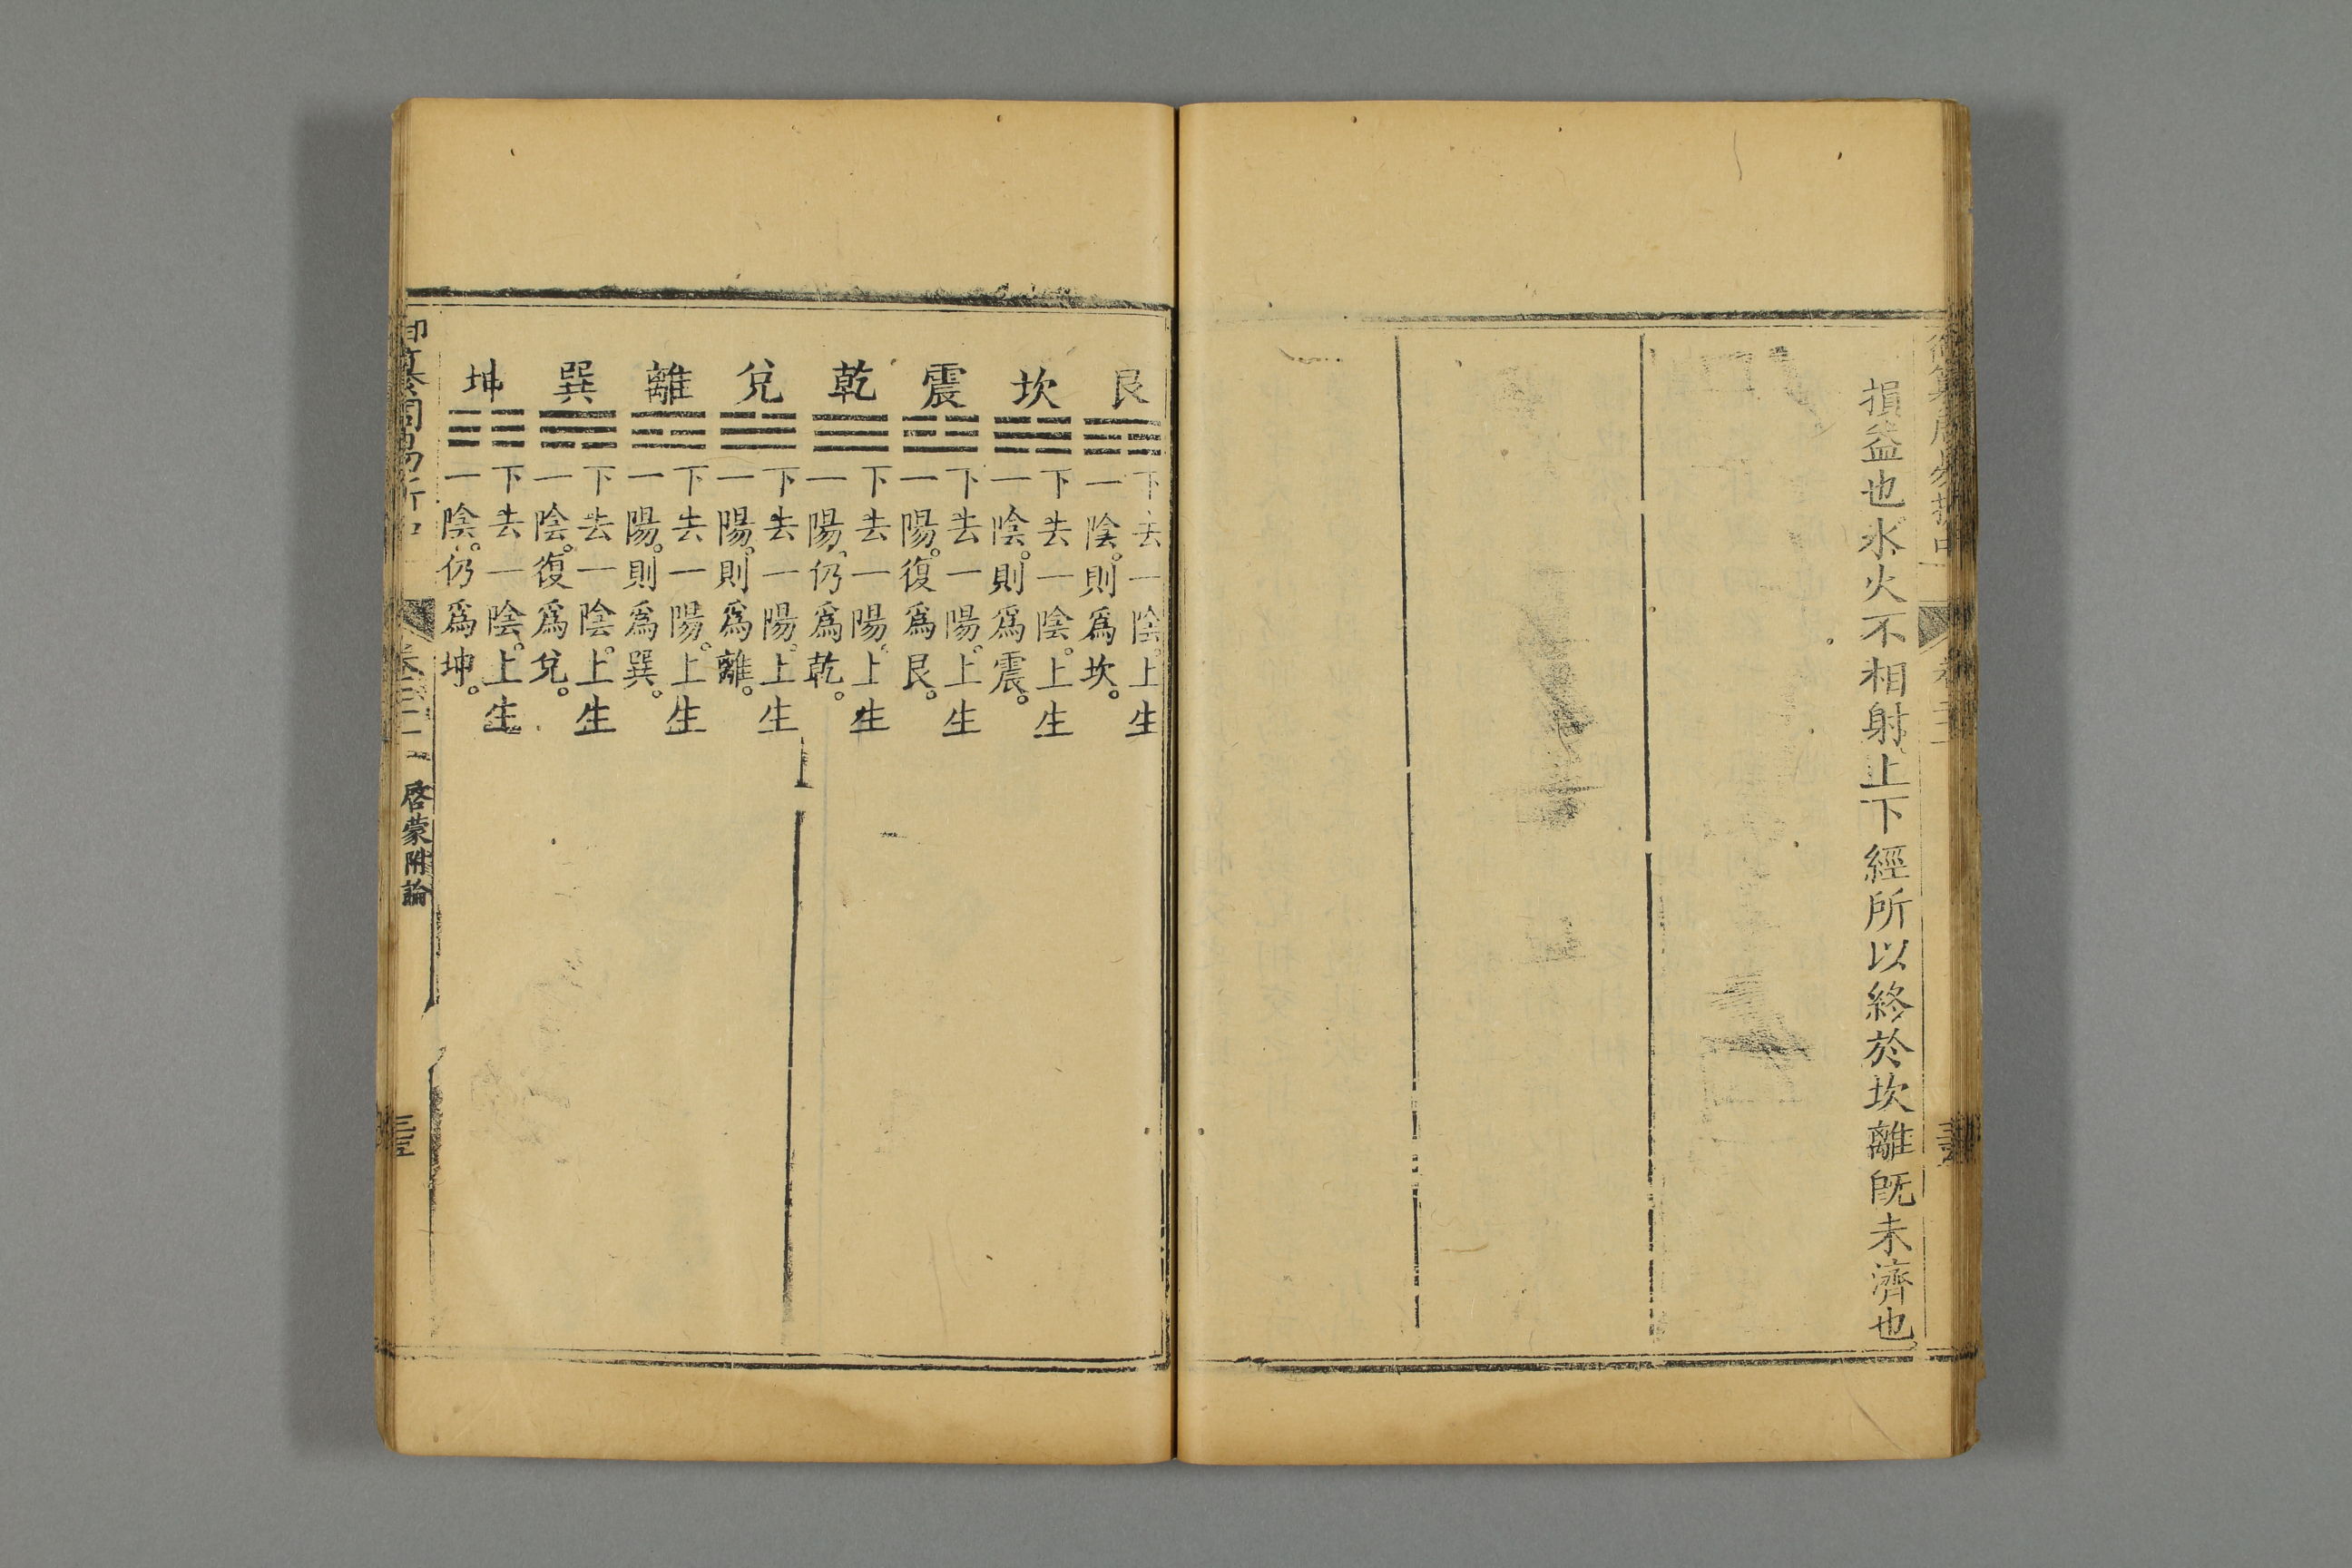 損益也水火不相射上下經所以終於坎離旣未濟也。
艮
下去一陰。上生
一陰。則爲坎。
坎
下去一陰。上生
一陰。則爲震。
震
下去一陽。上生
一陽。復爲艮。
乾
下去一陽。上生
一陽。仍爲乾。
兌
下去一陽。上生
一陽。則爲離。
離
下去一陽。上生
一陽。則爲巽。
巽
下去一陰。上生
一陰。復爲兌。
坤
下去一陰。上生
一陰。仍爲坤。
御纂周易折中
啓蒙附論